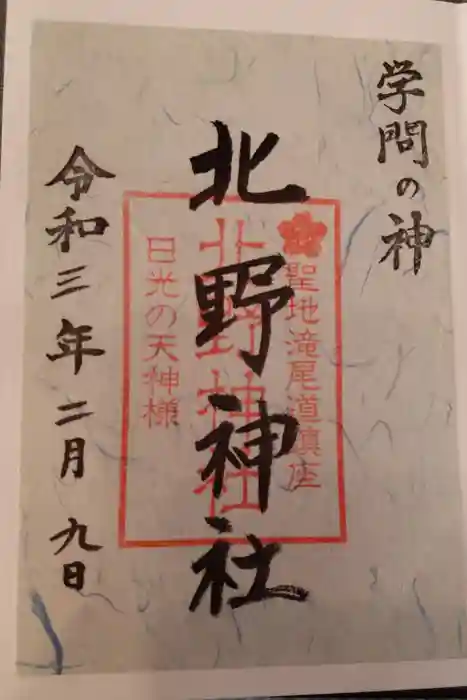 学問の神
北野神社
聖地滝尾道鎮座
北野神社
日光の天神様
令和三年二月九日